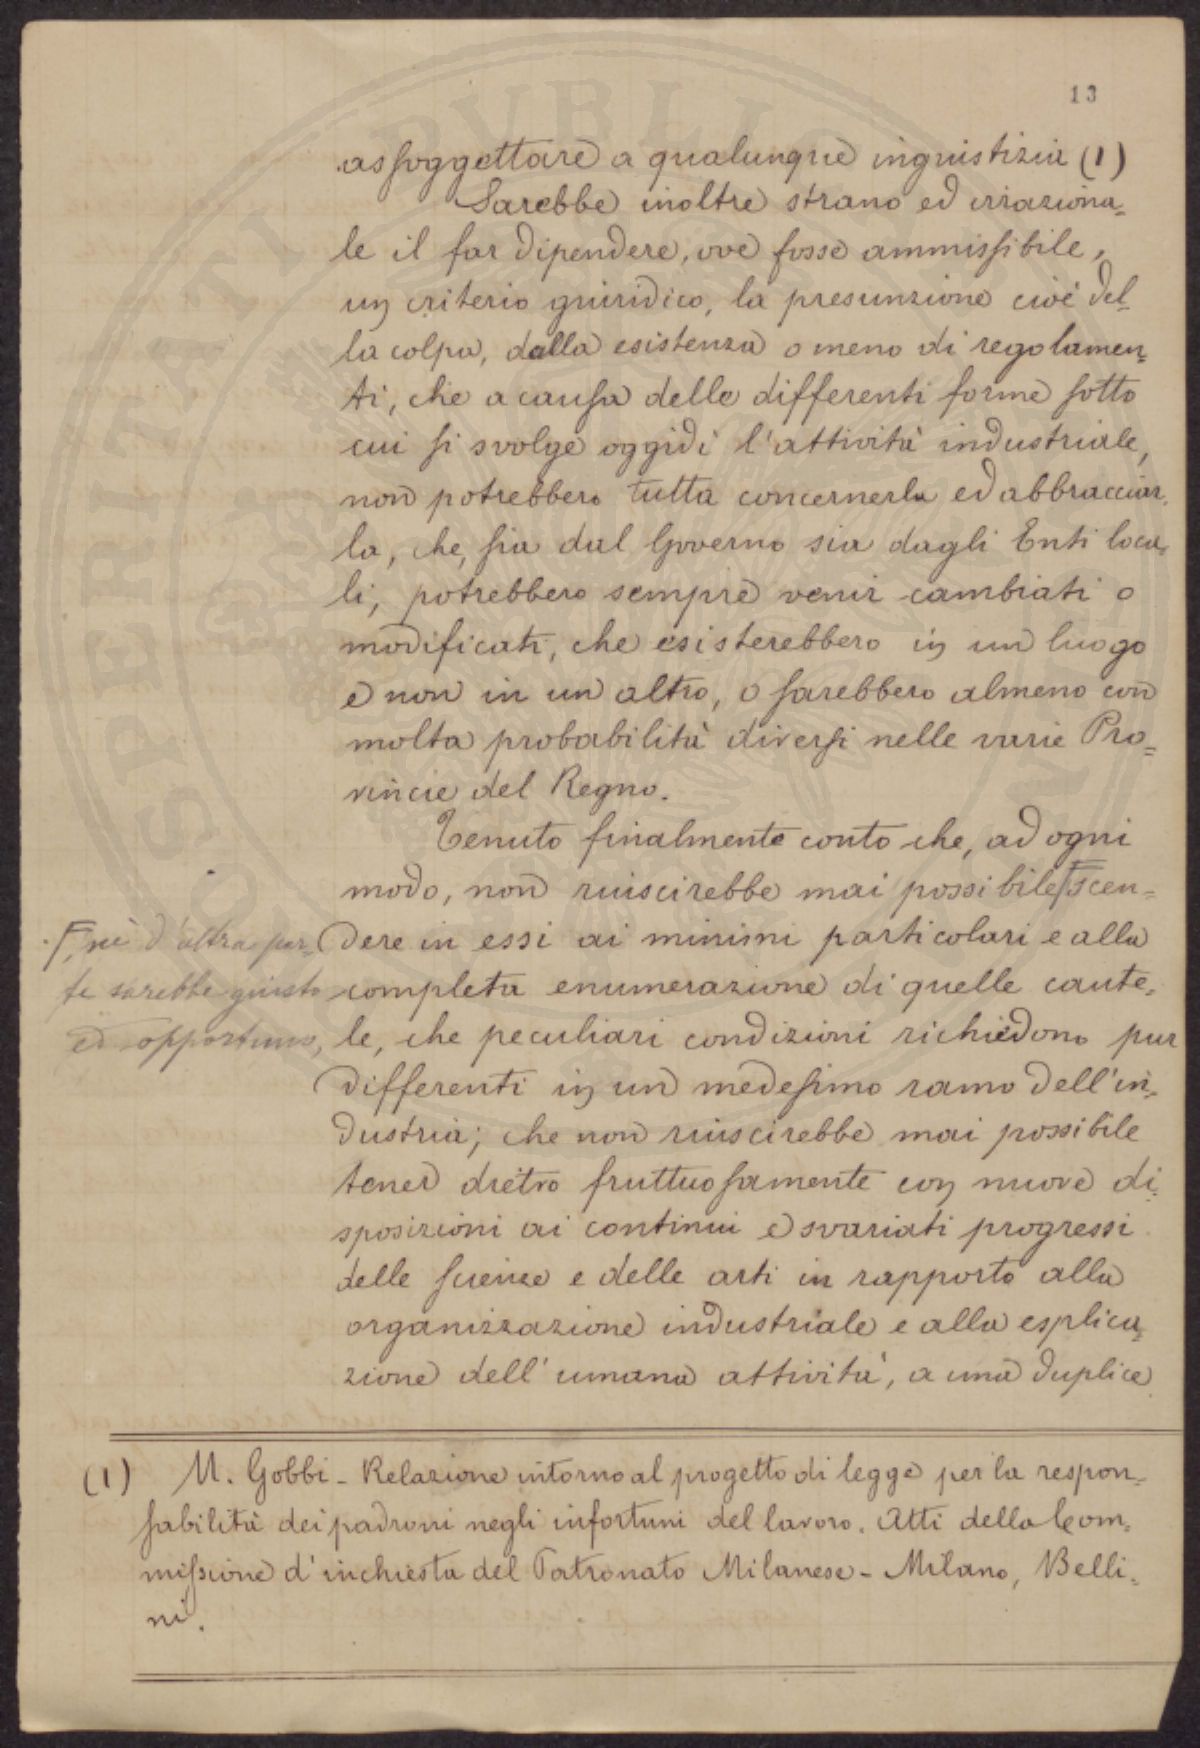 13
assoggettare a qualunque ingiustizia (1)
Sarebbe inoltre strano ed irraziona=
le il far dipendere, ove fosse ammissibile,
un criterio giuridico, la presunzione cioè del=
la colpa, dalla esistenza o meno di regolamen=
ti, che a causa delle differenti forme sotto
cui si svolge oggidì l'attività industriale,
non potrebbero tutta concernerla ed abbracciar=
la, che, sia dal Governo sia dagli Enti loca=
li, potrebbero sempre venir cambiati o
modificati, che esisterebbero in un luogo
e non in un altro, o sarebbero almeno con
molta probabilità diversi nelle varie Pro=
vincie del Regno.
Tenuto finalmente conto che, ad ogni
modo, non riuscirebbe mai possibile scen=
dere in essi ai minimi particolari e alla
, nè d'altra par=
te sarebbe giusto
ed opportuno,
completa enumerazione di quelle caute=
le, che peculiari condizioni richiedono pur
differenti in un medesimo ramo dell'in=
dustria; che non riuscirebbe mai possibile
tener dietro fruttuosamente con nuove di=
sposizioni ai continui e svariati progressi
delle scienze e delle arti in rapporto alla
organizzazione industriale e alla esplica=
zione dell'umana attività, a una duplice
(1) U. Gobbi - Relazione intorno al progetto di legge per la respon=
sabilità dei padroni negli infortuni del lavoro. Atti della Com=
missione d'inchiesta del Patronato Milanese - Milano, Belli=
ni.
PROSPERITATI PVBLICAE